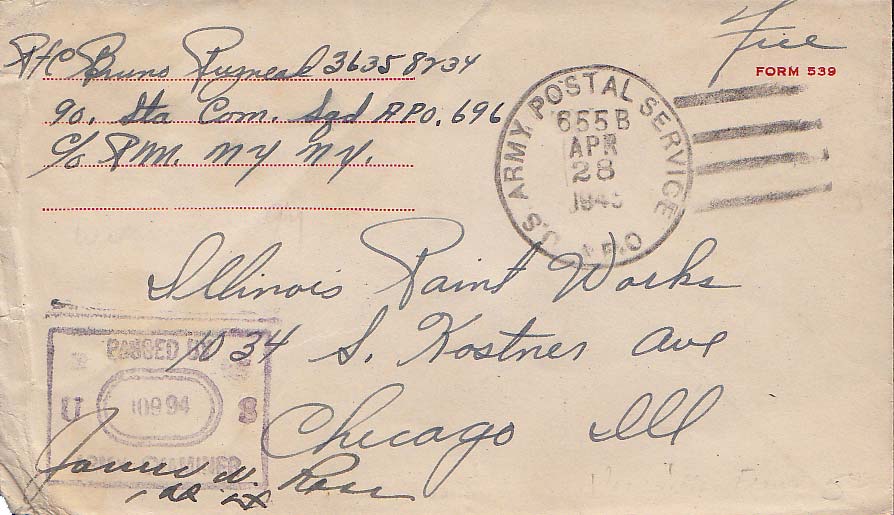 Free
FORM 539
Pfc Bruno 36358234
90. Sta Com. Sqd APO. 696
c/o P.M. NY NY.
U.S. ARMY POSTAL SERVICE
655B
APR
28
A.P.O.
Illinois Paint Works
1034 S. Kostner Ave
Chicago Ill
PASSED BY
U S
10994
ARMY EXAMINER
James W. Ross